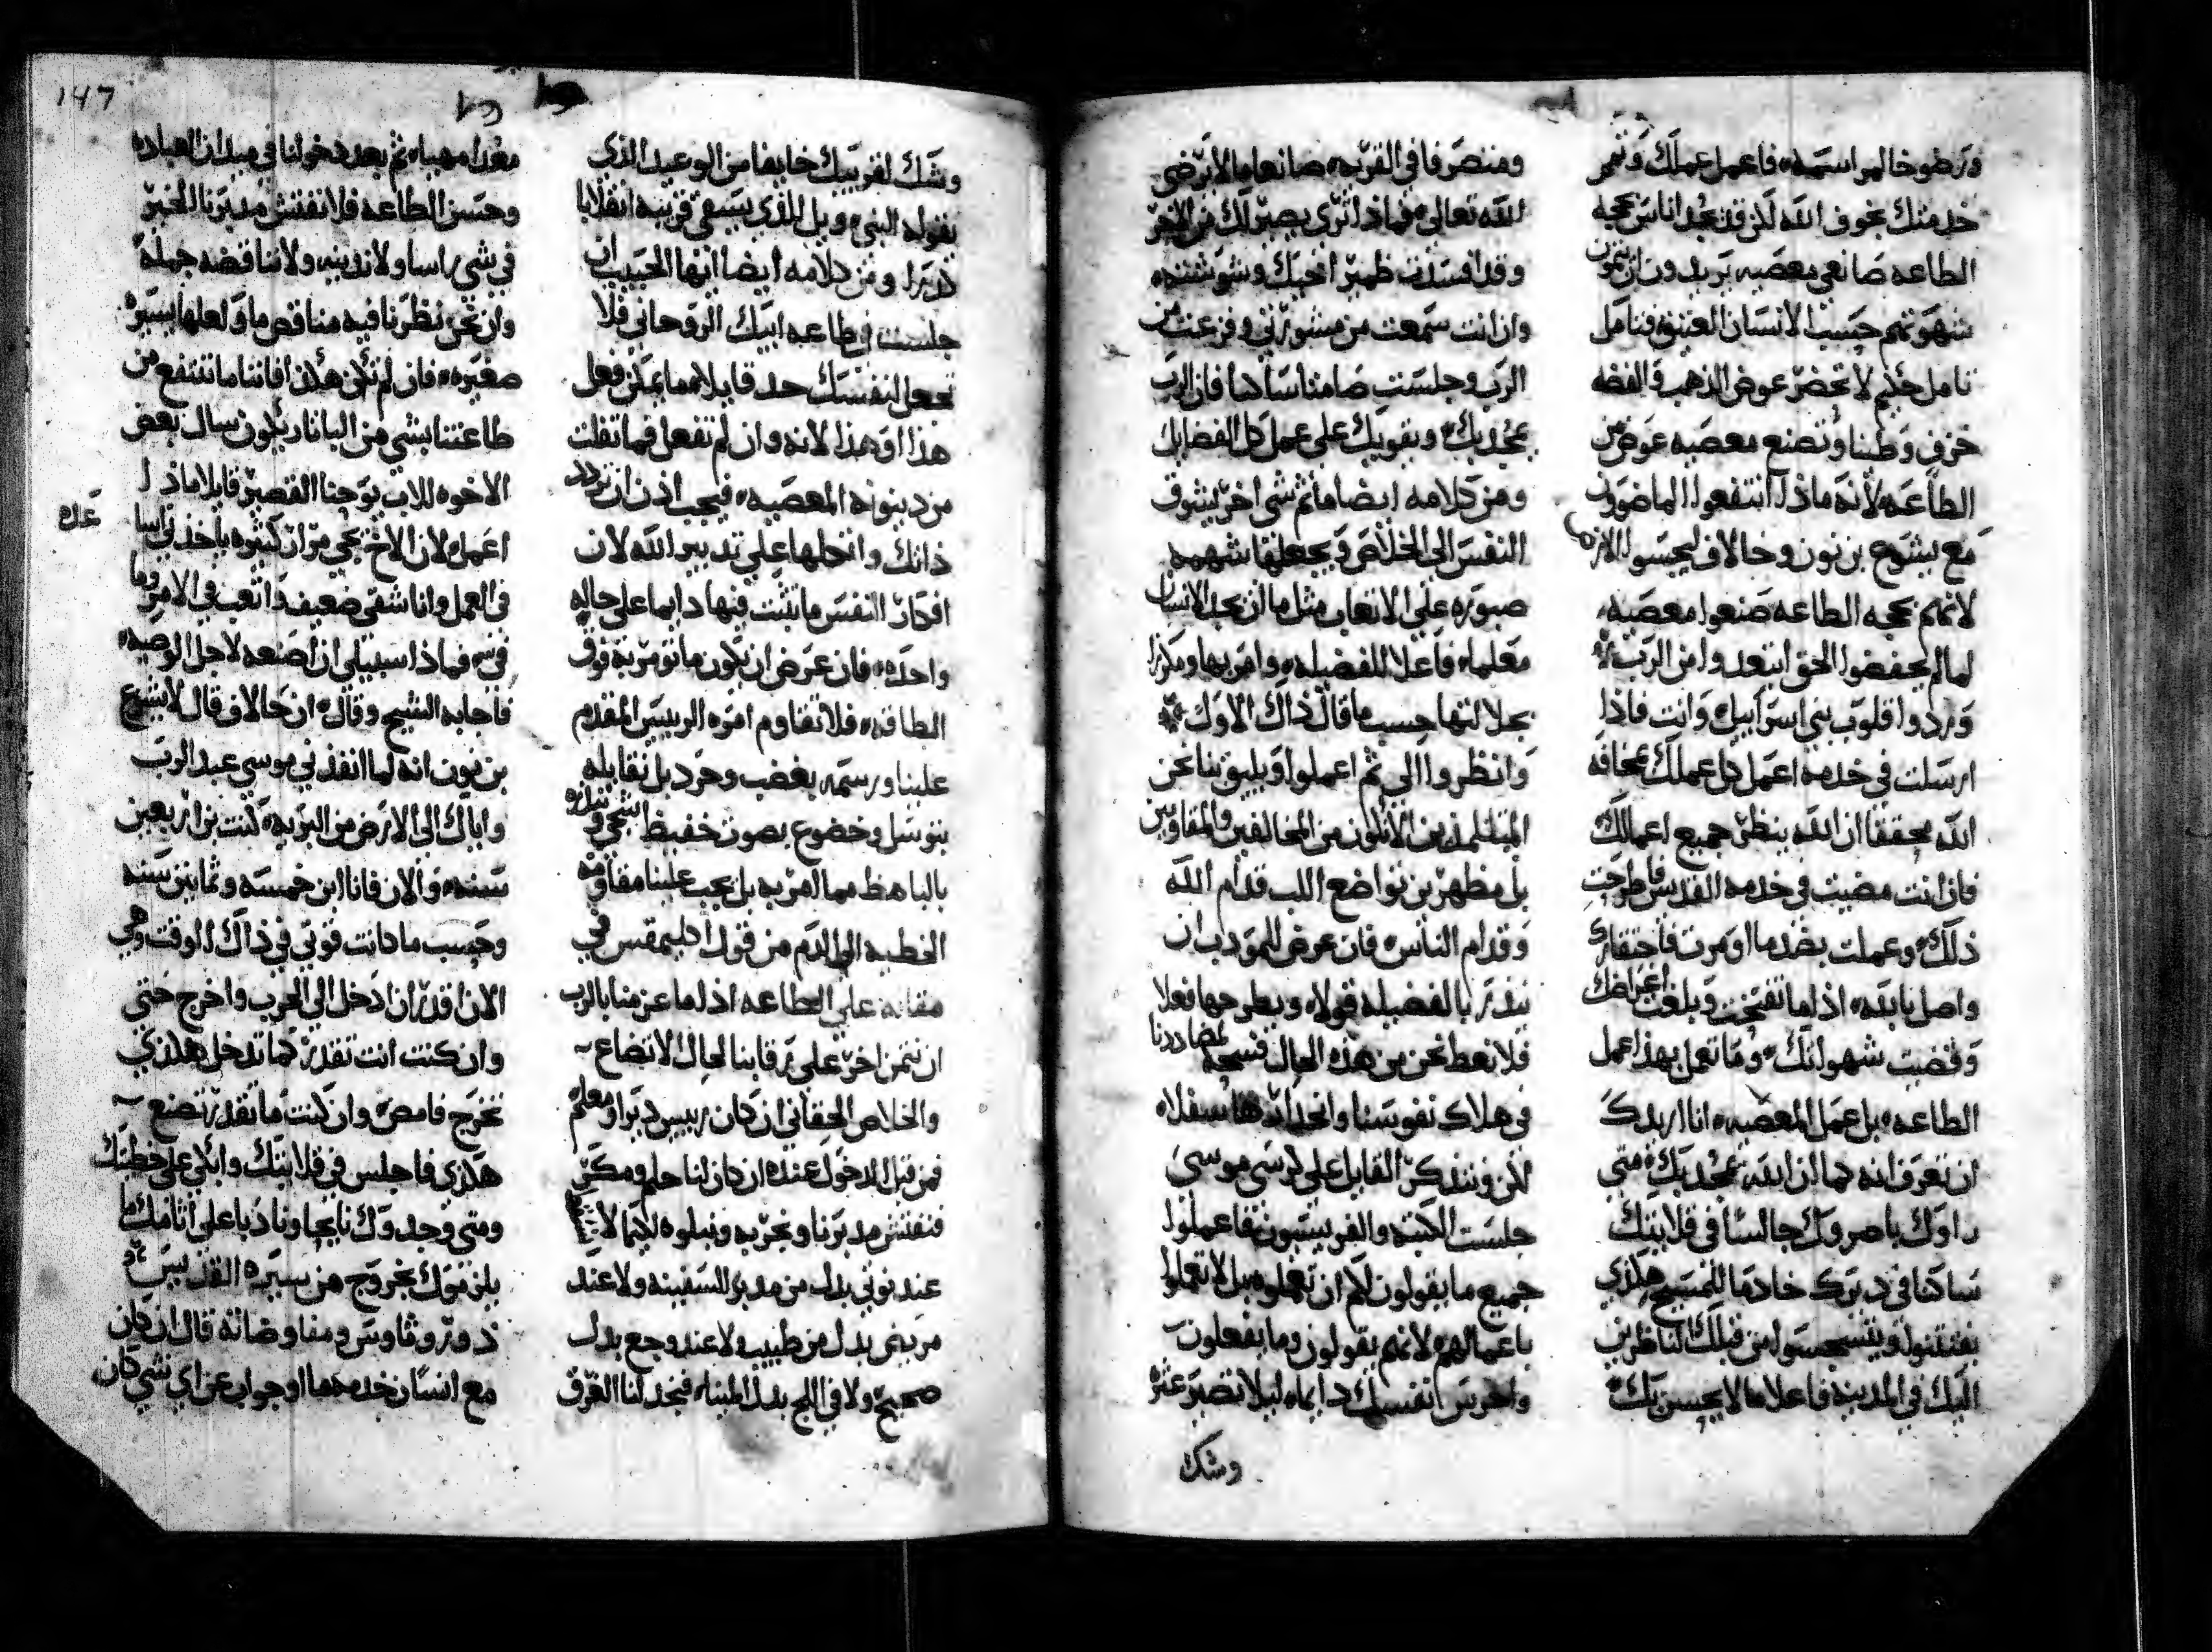 ورضوخا لمراسمه فاعمل عملك وتمم
خدمتك بخوف الله لكن قد نجد اناس بحجه
الطاعه صانعي معصيه يريدون ان يتمون
شهوتهم حسب الانسان العتيق فتامل
تامل حذر لا تحضر عوض الذهب والفضه
خزف وطينا وتصنع معصيه عوض من
الطاعه لانه ماذا انتفعوا الماضون
مع يشوع بن نون وخالاف ليجسوا الارض
لانهم بحجه الطاعه صنعوا معصيه
لما لم يحفضوا الحق ابتعدوا من الرب
وردوا قلوب بني اسراييل وانت فاذا
ارسلت في خدمه اعمل كل عملك بمخافه
الله محققا ان الله ينظر جميع اعمالك
فان انت مضيت في خدمه القديس فاطرحت
ذلك وعملت بضد ما اومرت فاحتقارك
واصل بالله اذ لما تفتخت وبلغت اغراضك
وقضيت شهواتك وما تعمل بهذا عمل
الطاعه بل عمل المعصيه انا اريدك
ان تعرف انه كما ان الله يمجد بك متى
راوك باصروك جالسا في قلايتك
ساكنا في ديرك خادما للمسيح هكذي
يفتتنوا ويتسجسوا من قبلك الناظرين
اليك في المدينه فاعلا ما لا يحسن بك
ومنصرفا في القريه صانعا ما لا يرضي
لله تعالى فماذا ترى يصير لك من الاجر
وقد افسدت ظمير اخيك وشوشته
وان انت سمعت من مشورتي وفزعت من
الرب وجلست صامتا ساكنا فان الرب
يمجد بك ويقويك على عمل كل الفضايل
ومن كلامه ايضا ما ثم شي اخر يشوق
النفس الى الخلاص ويجعلها شهمه
صبوره على الاتعاب مثل ما ان يجد الانسان
معلما فاعلا للفضيله وامر بها ومكرزا
بجلالتها حسب ما قال ذاك الاول
وانظروا الى ثم اعملوا ويليق بنا نحن
المتتلمذين الا نكون من المخالفين والمقاومين
بل مظهرين تواضع اللب قدام الله
وقدام الناس فان عرض للمودب ان
ينذر بالفضيله قولا ويطرحها فعلا
فلا نعط نحن من هذه الحال فسحه لمضاددنا
في هلاك نفوسنا وانحدارها سفلا
لكن ونتذكر القايل على كرسي موسى
جلست الكتبه والفريسيون فاعملوا
جميع ما يقولون لكم ان تعملوه بل لا تعملوا
باعمالهم لانهم يقولون وما يفعلون
واحرس نفسك دايما ليلا تصير عثره
وشك
147
وشك لقريبك خايفا من الوعيد الذي
نقوله النبي ويل للذي يسقي قريبه انقلابا
كدرا ومن كلامه ايضا ايها الحبيب ان
جلست في طاعه ابيك الروحاني فلا
تجعل لنفسك حد قايلا مما يمكن فعل
هذا او هذا لانه وان لم تفعل فما تفلت
من دينونه المعصيه فيجب اذن ان تردد
ذاتك واتكلها على تدبير الله لان
افكار النفس ما تثبت فيها دايما على حاله
واحده فان عرض ان يكون ما تومر به فوق
الطاقه فلا تقاوم امره الريس المقدم
علينا ورسمه بغضب وحرد بل نقابله
بتوسل وخضوع بصوت خفيض
بالباهظ مما امر به بل يجب علينا مقاومه
الخطيه الى الدم من قول اكليمقس في
مقاله على الطاعه اذ لما عزمنا بالرب
ان نتمن اخر على رقابنا لحال الاتضاع
والخلاص الحقاني ان كان رييس دير او معلم
فمن قبل الدخول عنده ان كان لنا حلم ومكر
فنفتش مدبرنا ونجربه ونبلوه لكيما لا
عند نوتي بدل من مدبر السفينه ولا عند
مريض بدل من طبيب ولا عند وجع بدل
صحيح ولا في اللج بدل المينا فيجد لنا الغرق
معدا مهيا ثم بعد دخولنا في ميدان العباده
وحسن الطاعه فلا نفتش مدبرنا الخير
في شي راسا ولا ندينه ولا نناقضه جمله
وان نحن نظرنا فيه مناقص ما ولعلها يسيره
صغيره فان لم نكن هكذا فاننا ما ننتفع من
طاعتنا بشي من اليانا ريكون سال بعض
الاخوه للاب يوحنا القصير قايلا ماذا
اعمل لان الاخ يجي مرار كثيره ياخذني
في العمل وانا شقي ضعيف واتعب في الامر
فماذا سبيلي ان اصنعه لاجل الوصيه
فاجابه الشيخ وقال ان خالاف قال لايشوع
بن نون انه لما انفذني موسي عبد الرب
واياك الى الارض من البريه كنت بن اربعين
سنه والان فانا ابن خمسه وثمانين سنه
وحسب ما كانت قوتي في ذاك الوقت وهي
الان اقدر ان ادخل الى الحرب واخرج حتى
وان كنت انت تقدر كما تدخل هكذي
تخرج فامض وان كنت ما تقدر تصنع
هكذي فاجلس في قلايتك وابكي على خطيتك
ومتى وجدوك نايحا وناذبا على اثامك ما
يلزموك بخروج من سيره القديس
دوروثاوس ومفاوضاته قال ان كان
مع انسان خدمه ما او جواب عن اي شي كان